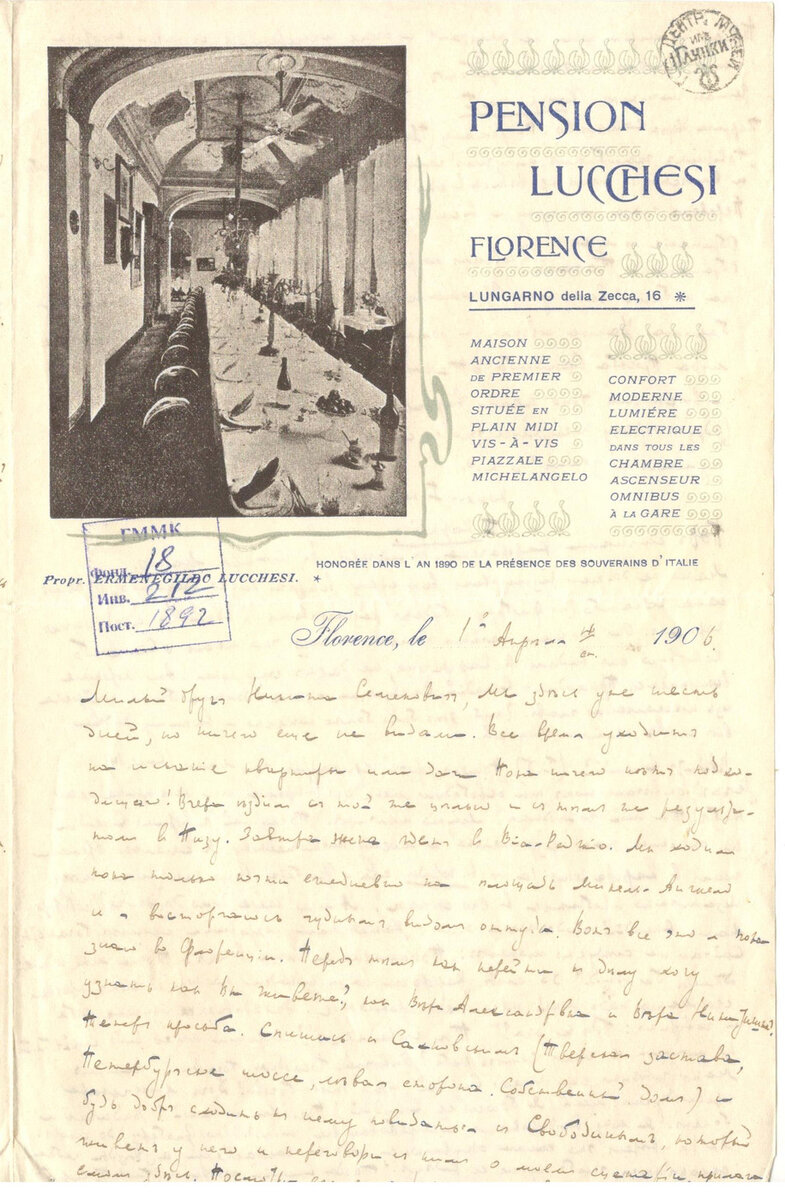 ЦЕНТР. МУЗЕЙ
ИМ.
ГЛИНКИ
PENSION
LUCCHESI
FLORENCE
LUNGARNO della Zecca, 16 *
MAISON
ANCIENNE
DE PREMIER
ORDRE
SITUÉE EN
PLAIN MIDI
VIS-À-VIS
PIAZZALE
MICHELANGELO
CONFORT
MODERNE
LUMIÉRE
ELECTRIQUE
DANS TOUS LES
CHAMBRE
ASCENSEUR
OMNIBUS
À LA GARE
HONORÉE DANS L'AN 1890 DE LA PRÉSENCE DES SOUVERAINS D'ITALIE
Propr. ERMENEGILDO LUCCHESI. *
ГММК
Фонд. 18
Инв. 212
Пост. 1892
Florence, le 1го Апреля 1906.
Милый друг Никита Семенович, мы здесь уже шесть
дней, но ничего еще не видали. Все время уходитъ
на искание квартиры или дачи. Пока ничего нетъ подхо-
дящаго! Вчера ездили съ той же целью и съ темъ же резуль-
татом в Пизу. Завтра жена едет в Via-Reggio. Мы ходим
пока только почти ежедневно на площадь Микель-Анжело
и я восторгаюсь чудным видом оттуда. Вотъ все что я пока
знаю во Флоренции. Передъ темъ как перейти к делу хочу
узнать как Вы живете?, как Вера Александровна и Вера Никитишна?
Теперь просьба. Спишись с Сахновским (Тверская застава,
Петербургское шоссе, левая сторона. Собственный дом) и
будь добръ сходить к нему повидаться со Свободиным, который
живет у него и переговори с ним о моем сценарии,